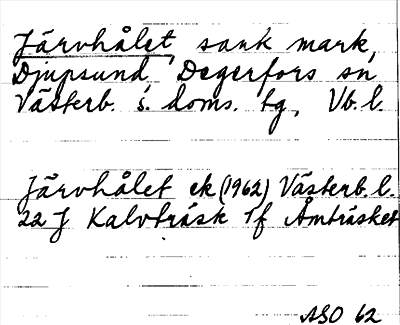 Järvhålet, sank mark,
Djupsund, Degerfors sn,
Västerb. s. doms. tg, Vb. l.
Järvhålet ek (1962) Västerb. l.
22 J Kalvträsk 7f Åmträsket
ASO 62